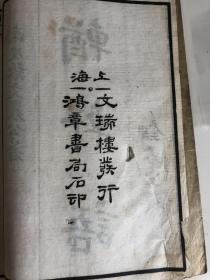 上海
文瑞樓發行
鴻章書局石印